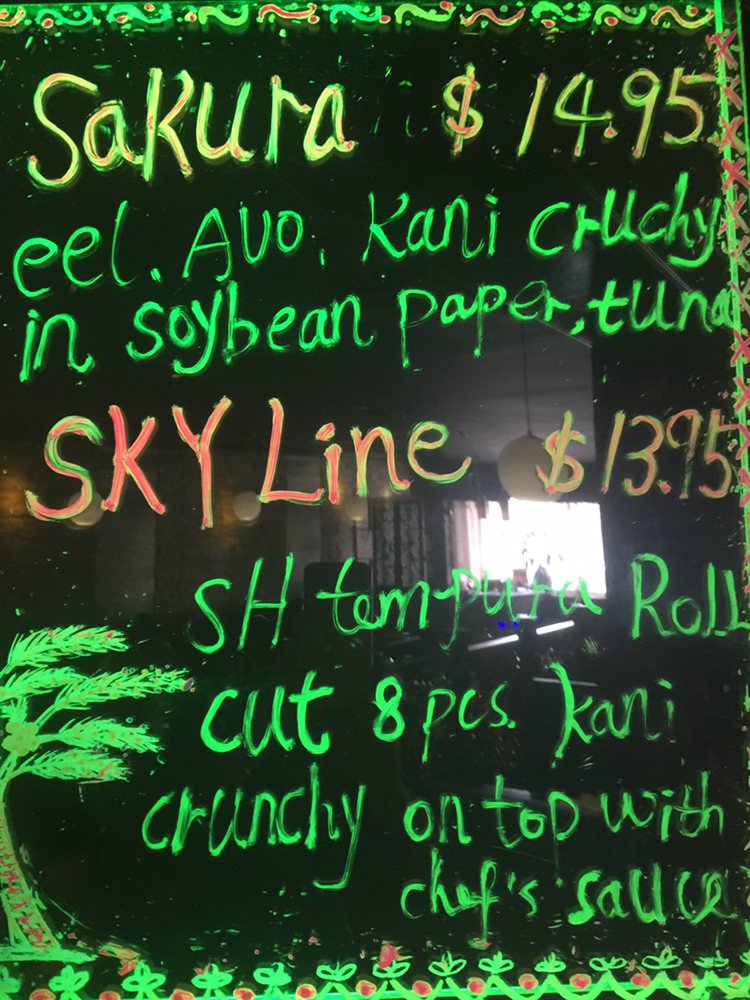 Sakura $14.95
eel. Avo. Kani cruchy
in soybean paper, tuna
SKY Line $13.95
SH tempura Roll
cut 8 pcs. kani
crunchy on top with
chef's sauce